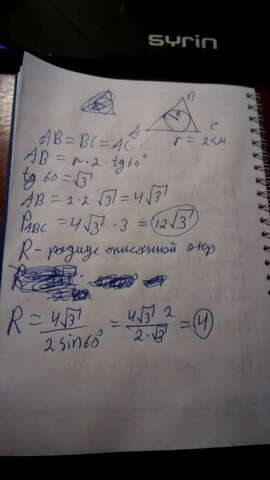 syrin
B
A C
r = 2см
AB = BC = AC
AB = r · 2 · tg 60°
tg 60 = √3
AB = 2 · 2 √3 = 4√3
P_ABC = 4√3 · 3 = 12√3
R - радиус описанной окр
R = 4√3 / 2 sin 60° = 4√3 · 2 / 2 · √3 = 4